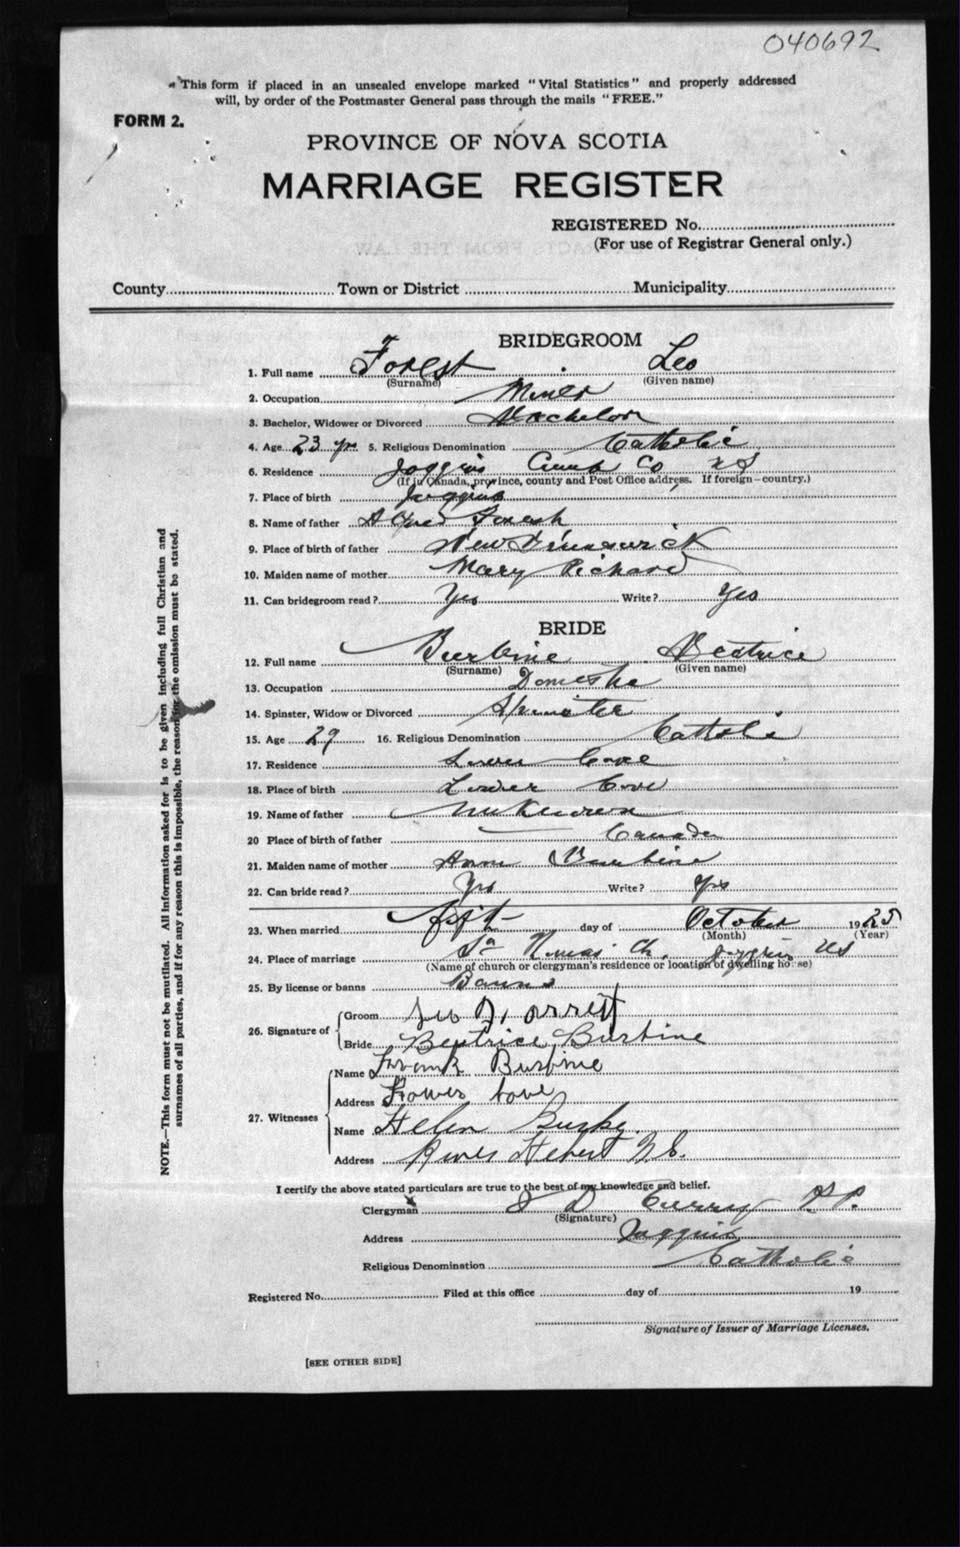 040692
"This form if placed in an unsealed envelope marked "Vital Statistics" and properly addressed
will, by order of the Postmaster General pass through the mails "FREE."
FORM 2.
PROVINCE OF NOVA SCOTIA
MARRIAGE REGISTER
REGISTERED No.
(For use of Registrar General only.)
County Town or District Municipality
BRIDEGROOM
1. Full name Forest Leo
(Surname) (Given name)
2. Occupation Miner
3. Bachelor, Widower or Divorced Bachelor
4. Age 23 yr 5. Religious Denomination Catholic
6. Residence Joggins Cumb Co NS
(If in Canada, province, county and Post Office address. If foreign—country.)
7. Place of birth Joggins
8. Name of father Forest
9. Place of birth of father New Brunswick
10. Maiden name of mother Mary Richard
11. Can bridegroom read? Yes Write? Yes
BRIDE
12. Full name Burbine Beatrice
(Surname) (Given name)
13. Occupation Domestic
14. Spinster, Widow or Divorced Spinster
15. Age 29 16. Religious Denomination Catholic
17. Residence Lower Cove
18. Place of birth Lower Cove
19. Name of father
20 Place of birth of father Canada
21. Maiden name of mother Ann Burbine
22. Can bride read? Yes Write? Yes
23. When married day of October 1925
(Month) (Year)
24. Place of marriage Ch. Joggins NS
(Name of church or clergyman's residence or location of dwelling house)
25. By license or banns Banns
26. Signature of Groom
Bride Beatrice Burbine
27. Witnesses Name Frank Burbine
Address Lower Cove
Name Helen Burke
Address River Hebert N.S.
I certify the above stated particulars are true to the best of my knowledge and belief.
Clergyman J D Curry P.P.
(Signature)
Address Joggins
Religious Denomination Catholic
Registered No. Filed at this office day of 19
Signature of Issuer of Marriage Licenses.
[SEE OTHER SIDE]
NOTE.—This form must not be mutilated. All information asked for is to be given including full Christian and
surnames of all parties, and if for any reason this is impossible, the reason for the omission must be stated.